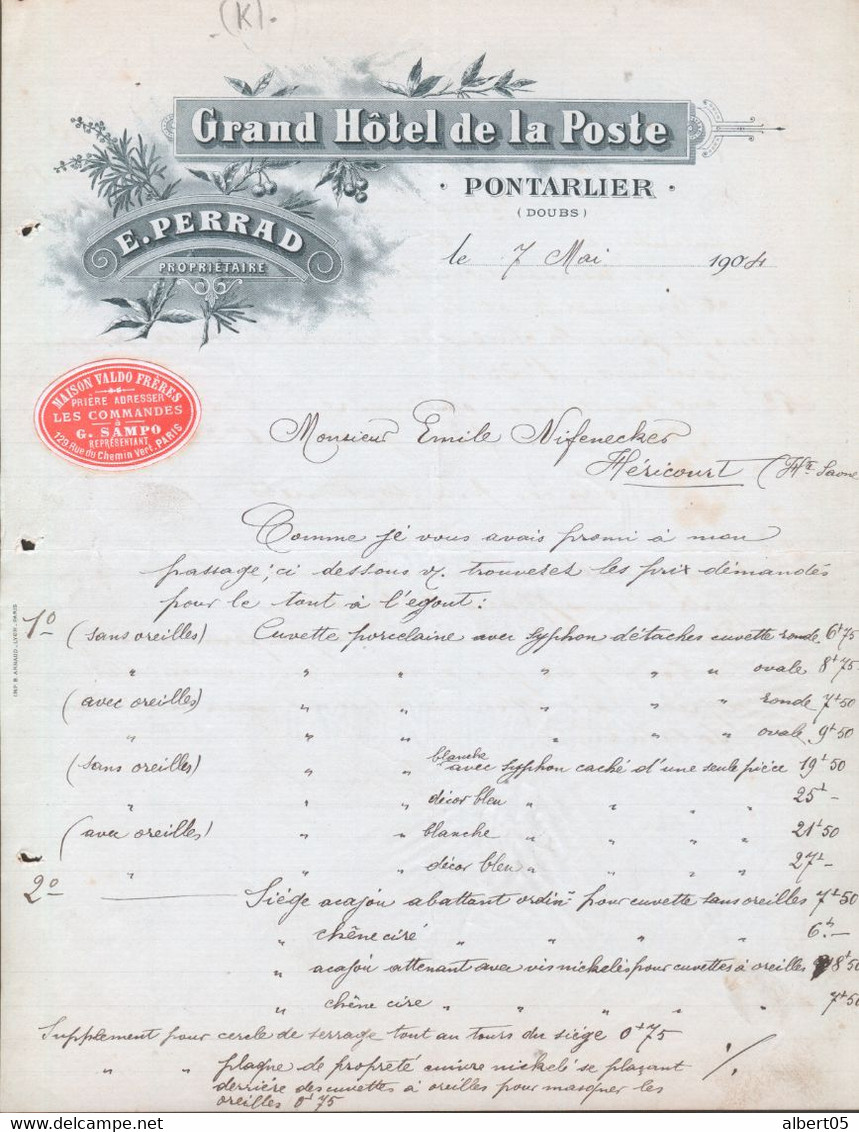 (K).
Grand Hôtel de la Poste
PONTARLIER
(DOUBS)
E. PERRAD
PROPRIÉTAIRE
le 7 Mai 1904
MAISON VALDO FRÈRES
PRIÈRE ADRESSER
LES COMMANDES
à
G. SAMPO
REPRÉSENTANT
129 Rue du Chemin Vert. PARIS
Monsieur Emile Nifenecker
Héricourt (Hte Saone
Comme je vous avais promi à mon
passage; ci dessous v. trouverez les prix démandés
pour le tout à l'égout:
1º (sans oreilles) Cuvette porcelaine avec syphon détaches cuvette ronde 6f75
" " " " " " ovale 8f75
(avec oreilles) " " " " " ronde 7f50
" " " " " " ovale 9f50
(sans oreilles) " " blanche avec syphon caché d'une seule pièce 19f50
" " " décor bleu " " " " 25f-
(avec oreilles) " " blanche " " " " 21f50
" " " décor bleu " " " " 27f-
2º Siége acajou abattant ordinre pour cuvette sans oreilles 7f50
" chêne ciré " " " " 6f-
" acajou attenant avec vis nickelés pour cuvettes à oreilles 8f50
" chêne cire " " " " " 7f50
Supplement pour cercle de serrage tout au tours du siége 0f75
" " plaque de propreté cuivre nickelé se plaçant
derriére des cuvettes à oreilles pour masquer les
oreilles 0f75
IMP. B. ARNAUD, LYON-PARIS
albert05
www.delcampe.net